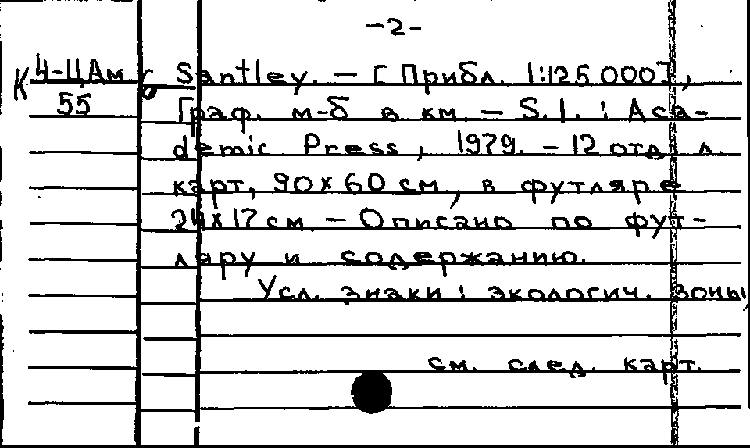 -2-
К 4-11,Ам
55
Santley. - [Прибл. 1:125 000],
Граф. м-б в км. - S.l. : Aca-
demic Press, 1979. - 12 отд. л.
карт, 90x60 см, в футляре
24x17 см. - Описано по фут-
ляру и содержанию.
Усл. знаки : экологич. зоны
см. след. карт.